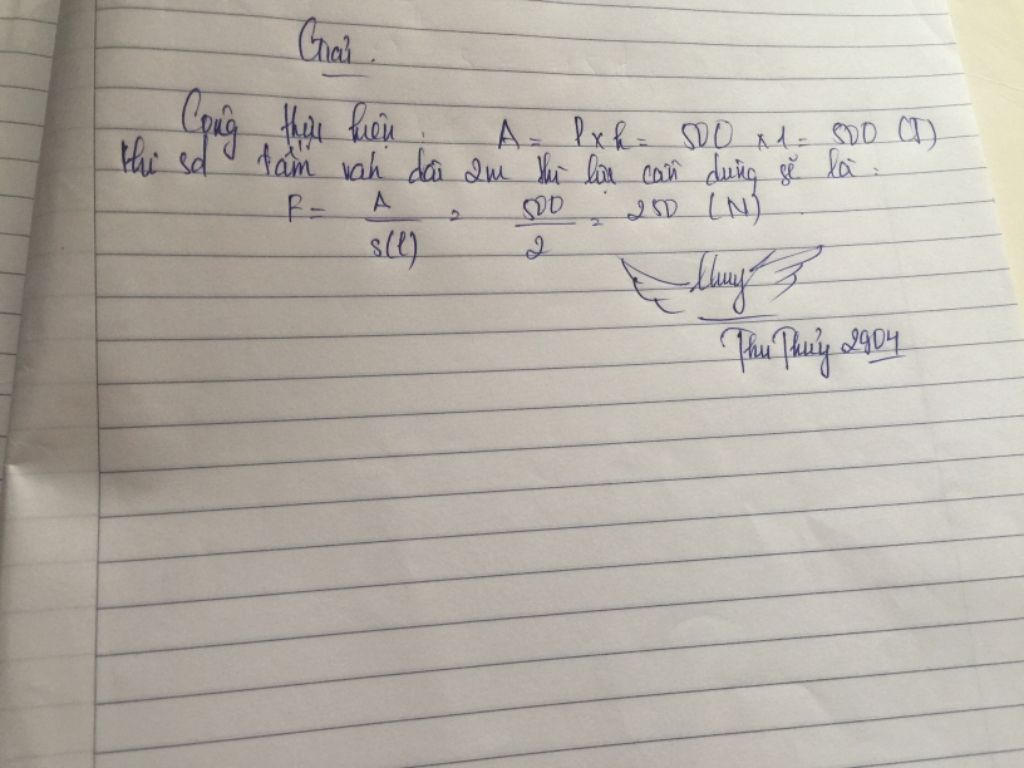 Giải.
Công thực hiện: A = P x h = 500 x 1 = 500 (J)
Khi sd tấm ván dài 2m thì lực cần dùng sẽ là:
F = A / s(l) = 500 / 2 = 250 (N)
thuy
Thu Thủy 2904